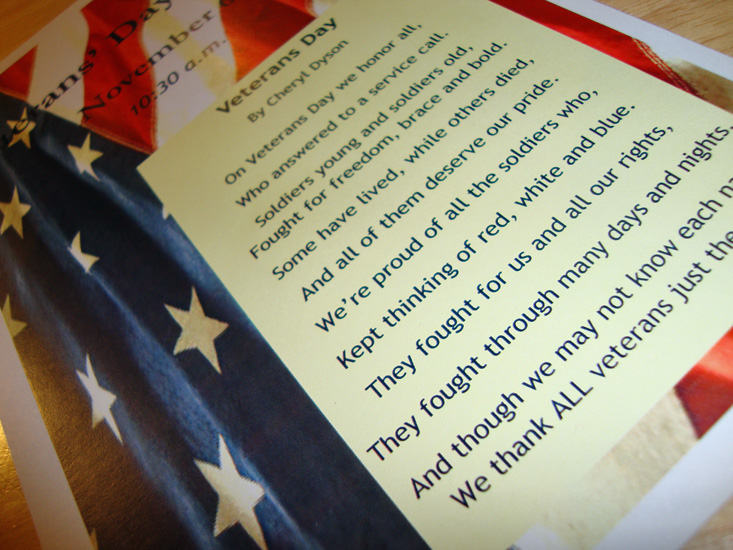 Veterans' Day
November
10:30 a.m.
Veterans Day
By Cheryl Dyson
On Veterans Day we honor all,
Who answered to a service call.
Soldiers young and soldiers old,
Fought for freedom, brace and bold.
Some have lived, while others died,
And all of them deserve our pride.
We're proud of all the soldiers who,
Kept thinking of red, white and blue.
They fought for us and all our rights,
They fought through many days and nights.
And though we may not know each
We thank ALL veterans just the